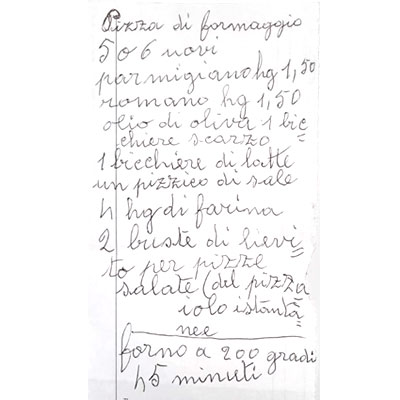 Pizza di formaggio
5 o 6 uovi
parmigiano hg 1,50
romano hg 1,50
olio di oliva 1 bic=
chiere scarzo
1 bicchiere di latte
un pizzico di sale
4 hg di farina
2 buste di lievi=
to per pizze
salate (del pizza=
iolo istanta=
nee
forno a 200 gradi
45 minuti